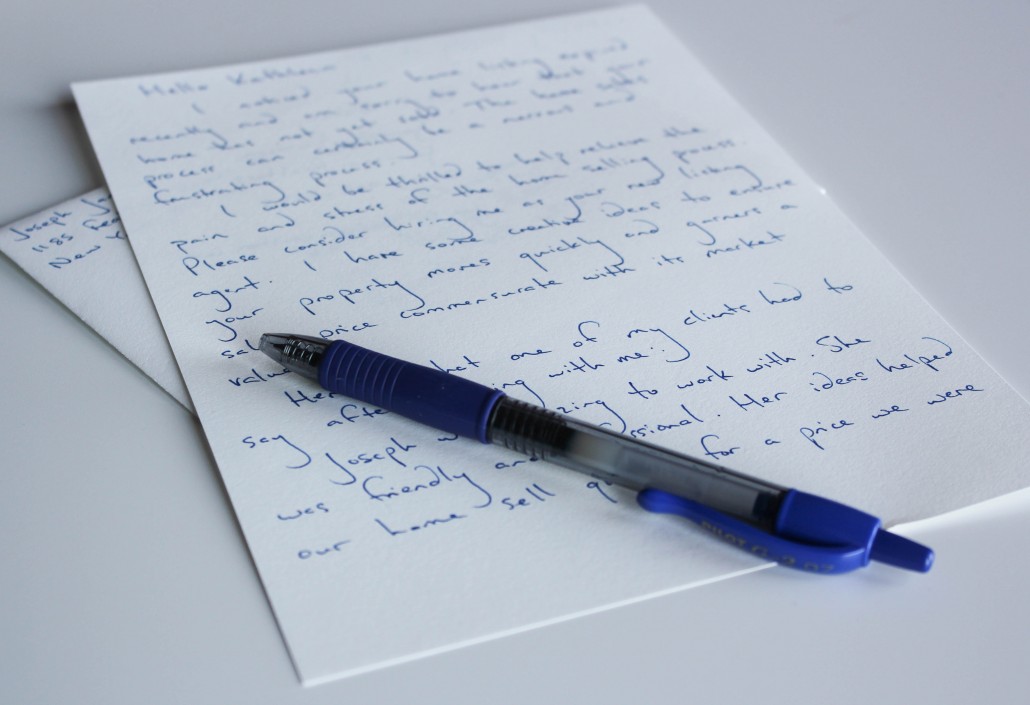 Hello Kathleen
I noticed your home listing expired
recently and am sorry to hear that your
home has not yet sold. The home sales
process can certainly be a nervous and
frustrating process.
I would be thrilled to help relieve the
pain and stress of the home selling process.
Please consider hiring me as your new listing
agent. I have some creative ideas to ensure
your property moves quickly and garners a
price commensurate with its market
one of my clients had to
say with me:
Joseph to work with. She
was friendly and Her ideas helped
our home sell for a price we were
Joseph
1185
New
PILOT G-2 07